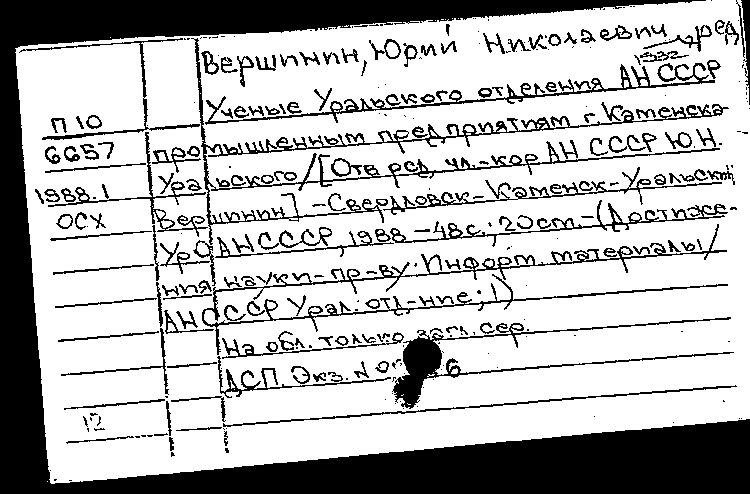 Вершинин, Юрий Николаевич, ред
1932
Ученые Уральского отделения АН СССР
П 10
промышленным предприятиям г. Каменска-
6657
Уральского / [Отв ред, чл.-кор АН СССР Ю.Н.
1988.1
Вершинин] - Свердловск - Каменск-Уральский,
ОСХ
УрО АН СССР, 1988 - 48 с.; 20 cm. - (Достиже-
ния науки - пр-ву. Информ. материалы /
АН СССР Урал. отд-ние; 1)
На обл. только загл. сер.
ДСП. Экз. N 6
12